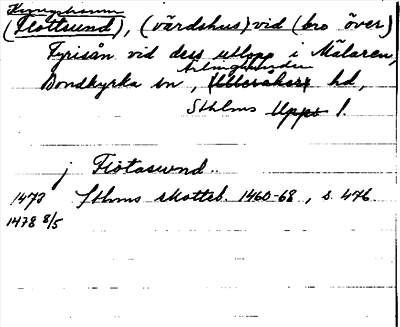 Kungshamn
(Flottsund), (värdshus) vid (bro över)
Fyrisån vid dess utlopp i Mälaren,
Ärlinghundra
Bondkyrka sn, Ulleråkers hd,
Sthlms Upps l.
j Flötasund..
1473 Sthms skotteb. 1460-68, s. 476.
1478 8/5